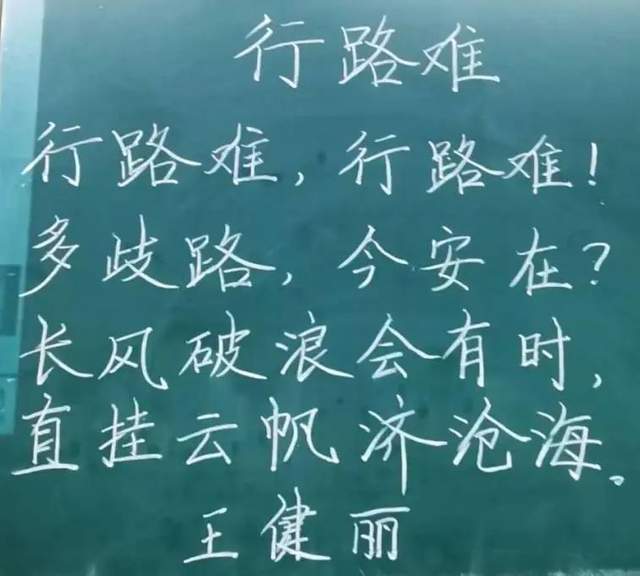 行路难
行路难,行路难!
多歧路,今安在?
长风破浪会有时,
直挂云帆济沧海。
王健丽